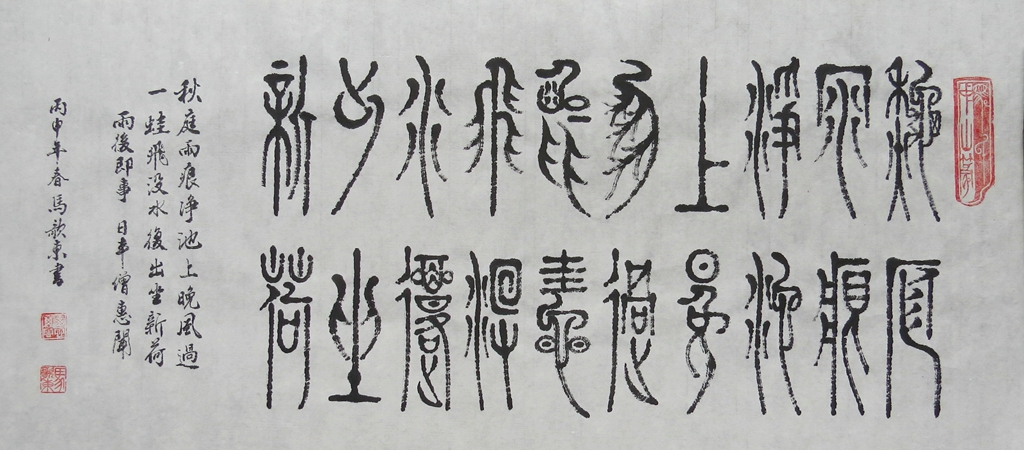 秋庭
雨痕
淨池
上晚
風過
一蛙
飛没
水復
出坐
新荷
秋庭雨痕淨池上晚風過
一蛙飛没水復出坐新荷
雨後即事 日本僧惠聞
丙申年春馬歌東書